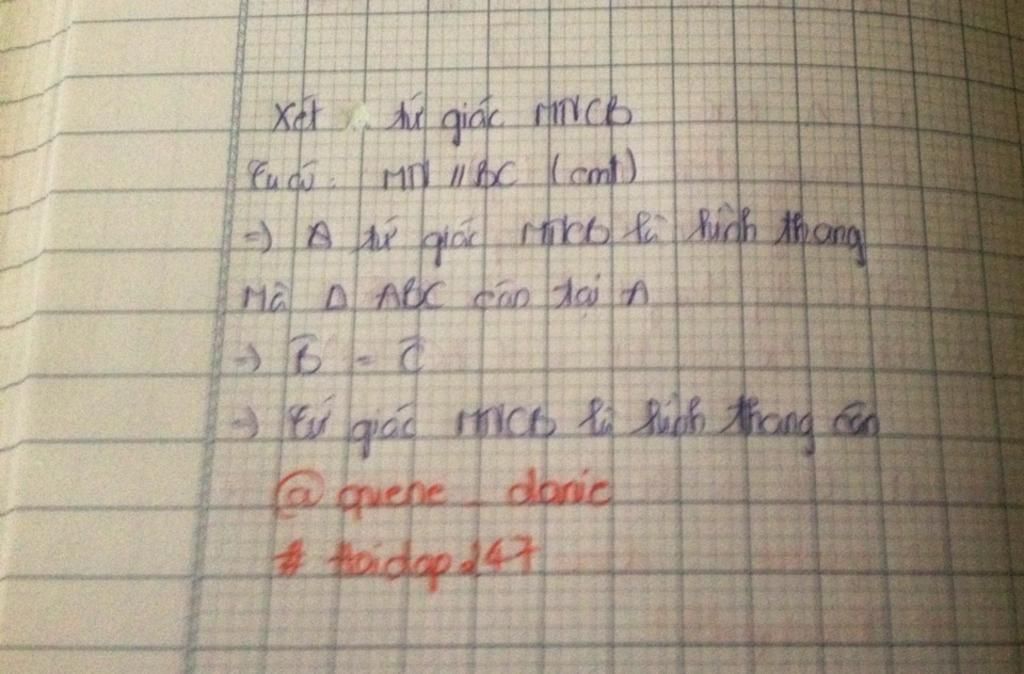 Xét tứ giác MNCB
Ta có: MN // BC (cmt)
=) tứ giác MNCB là hình thang
Mà Δ ABC cân tại A
=) B̂ = Ĉ
=) Tứ giác MNCB là hình thang cân
@ quene _ danie
# hoidap247